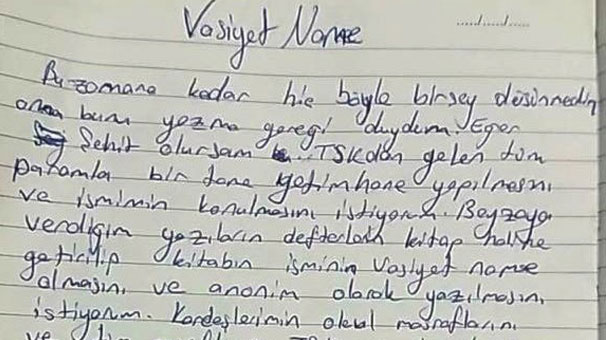 Vasiyet Name
..../..../....
Bu zamana kadar hic böyle birşey düşünmedim
ama bunu yazma geregi duydum. Eger
Şehit olursam TSKdan gelen tüm
paramla bir tane yetimhane yapılmasını
ve ismimin konulmasını istiyorum. Beyzaya
verdiğim yazıların defterlerin kitap haline
getirilip kitabın isminin Vasiyet name
olmasını ve anonim olarak yazılmasını
istiyorum. Kardeşlerimin okul masraflarını
ve